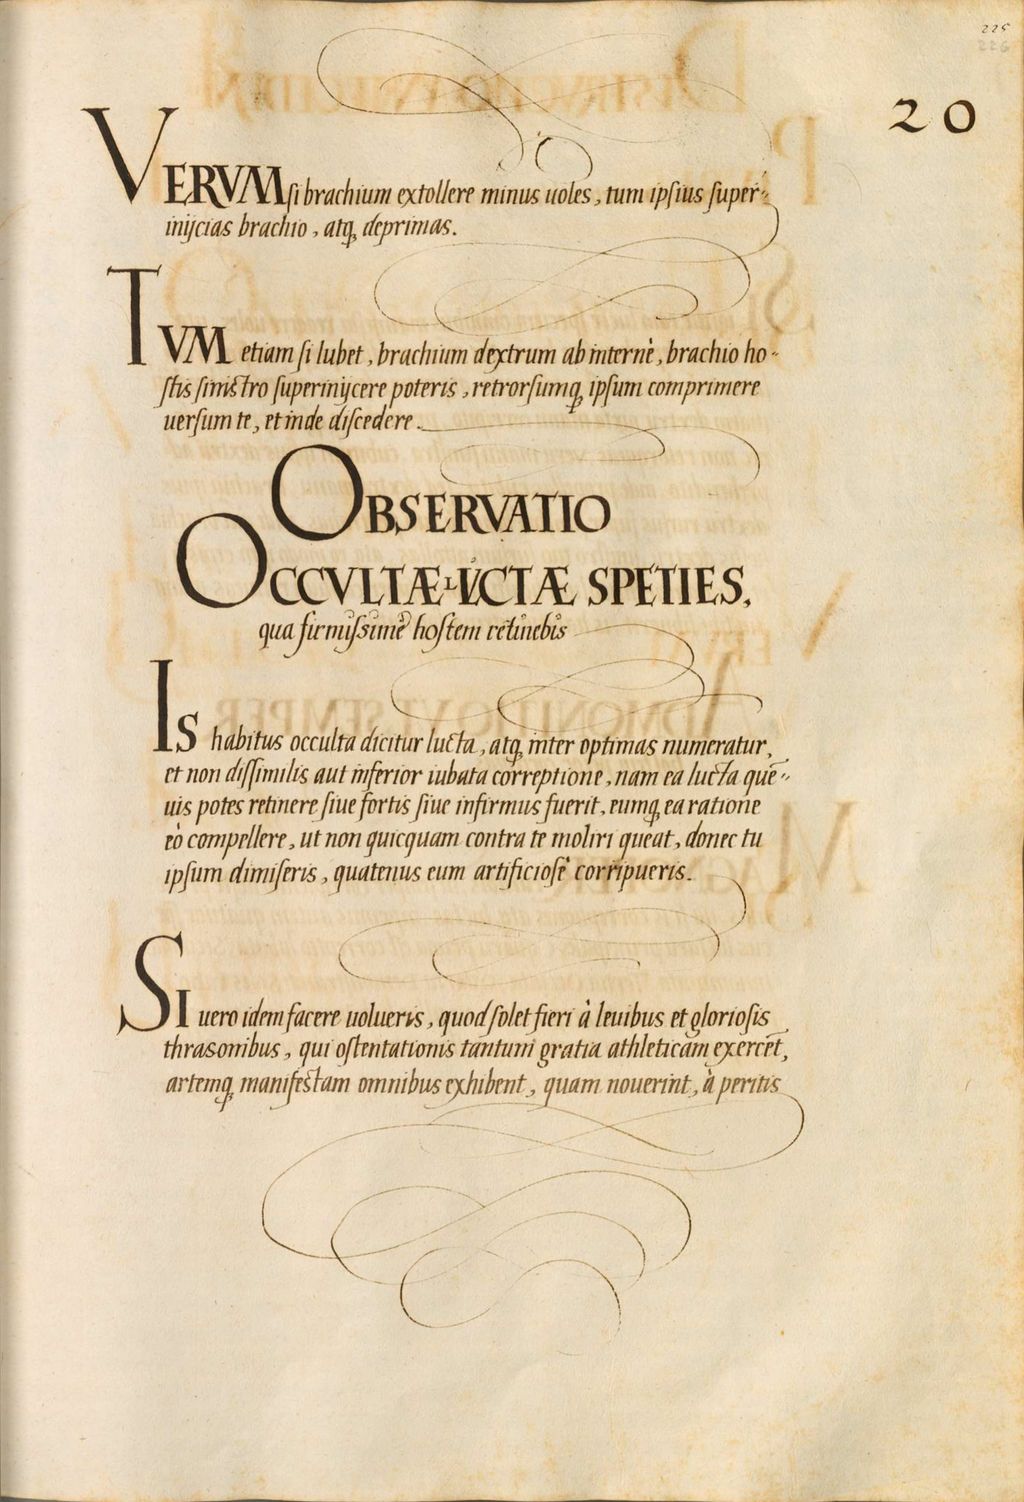 225
226
20
VERVM si brachium extollere minus uoles, tum ipsius super-
inijcias brachio, atq, deprimas.
TVM etiam si lubet, brachium dextrum ab internè, brachio ho-
stis sinistro superinijcere poteris, retrorsumq, ipsum comprimere
uersum te, et inde discedere.
OBSERVATIO
OCCVLTÆ LVCTÆ SPETIES,
qua firmissimè hostem retinebis
IS habitus occulta dicitur lucta, atq, inter optimas numeratur,
et non dissimilis aut inferior iubata correptione, nam ea lucta quē-
uis potes retinere siue fortis siue infirmus fuerit, eumq, ea ratione
eò compellere, ut non quicquam contra te moliri queat, donec tu
ipsum dimiseris, quatenus eum artificiosè corripueris.
SI uero idem facere uolueris, quod solet fieri à leuibus et gloriosis
thrasonibus, qui ostentationis tantum gratia athleticam exercēt,
artemq, manifestam omnibus exhibent, quam nouerint, à peritis